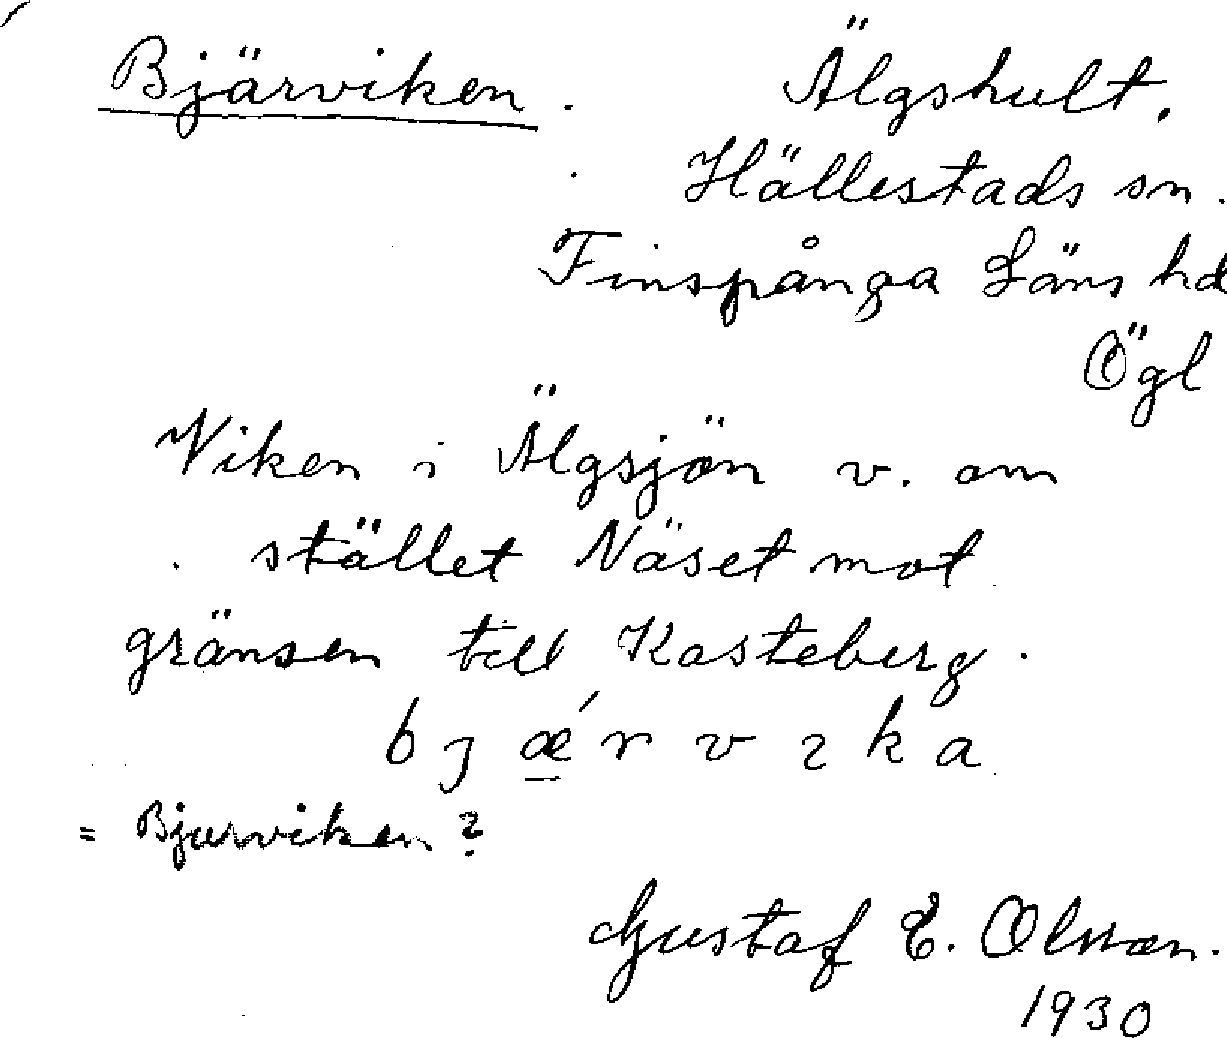 Bjärviken. Älgshult,
Hällestads sn.
Finspånga Läns hd
Ögl
Viken i Älgsjön v. om
stället Näset mot
gränsen till Kasteberg.
b j ǽ r v ɩ k a
= Bjurviken?
Gustaf E. Olsson.
1930